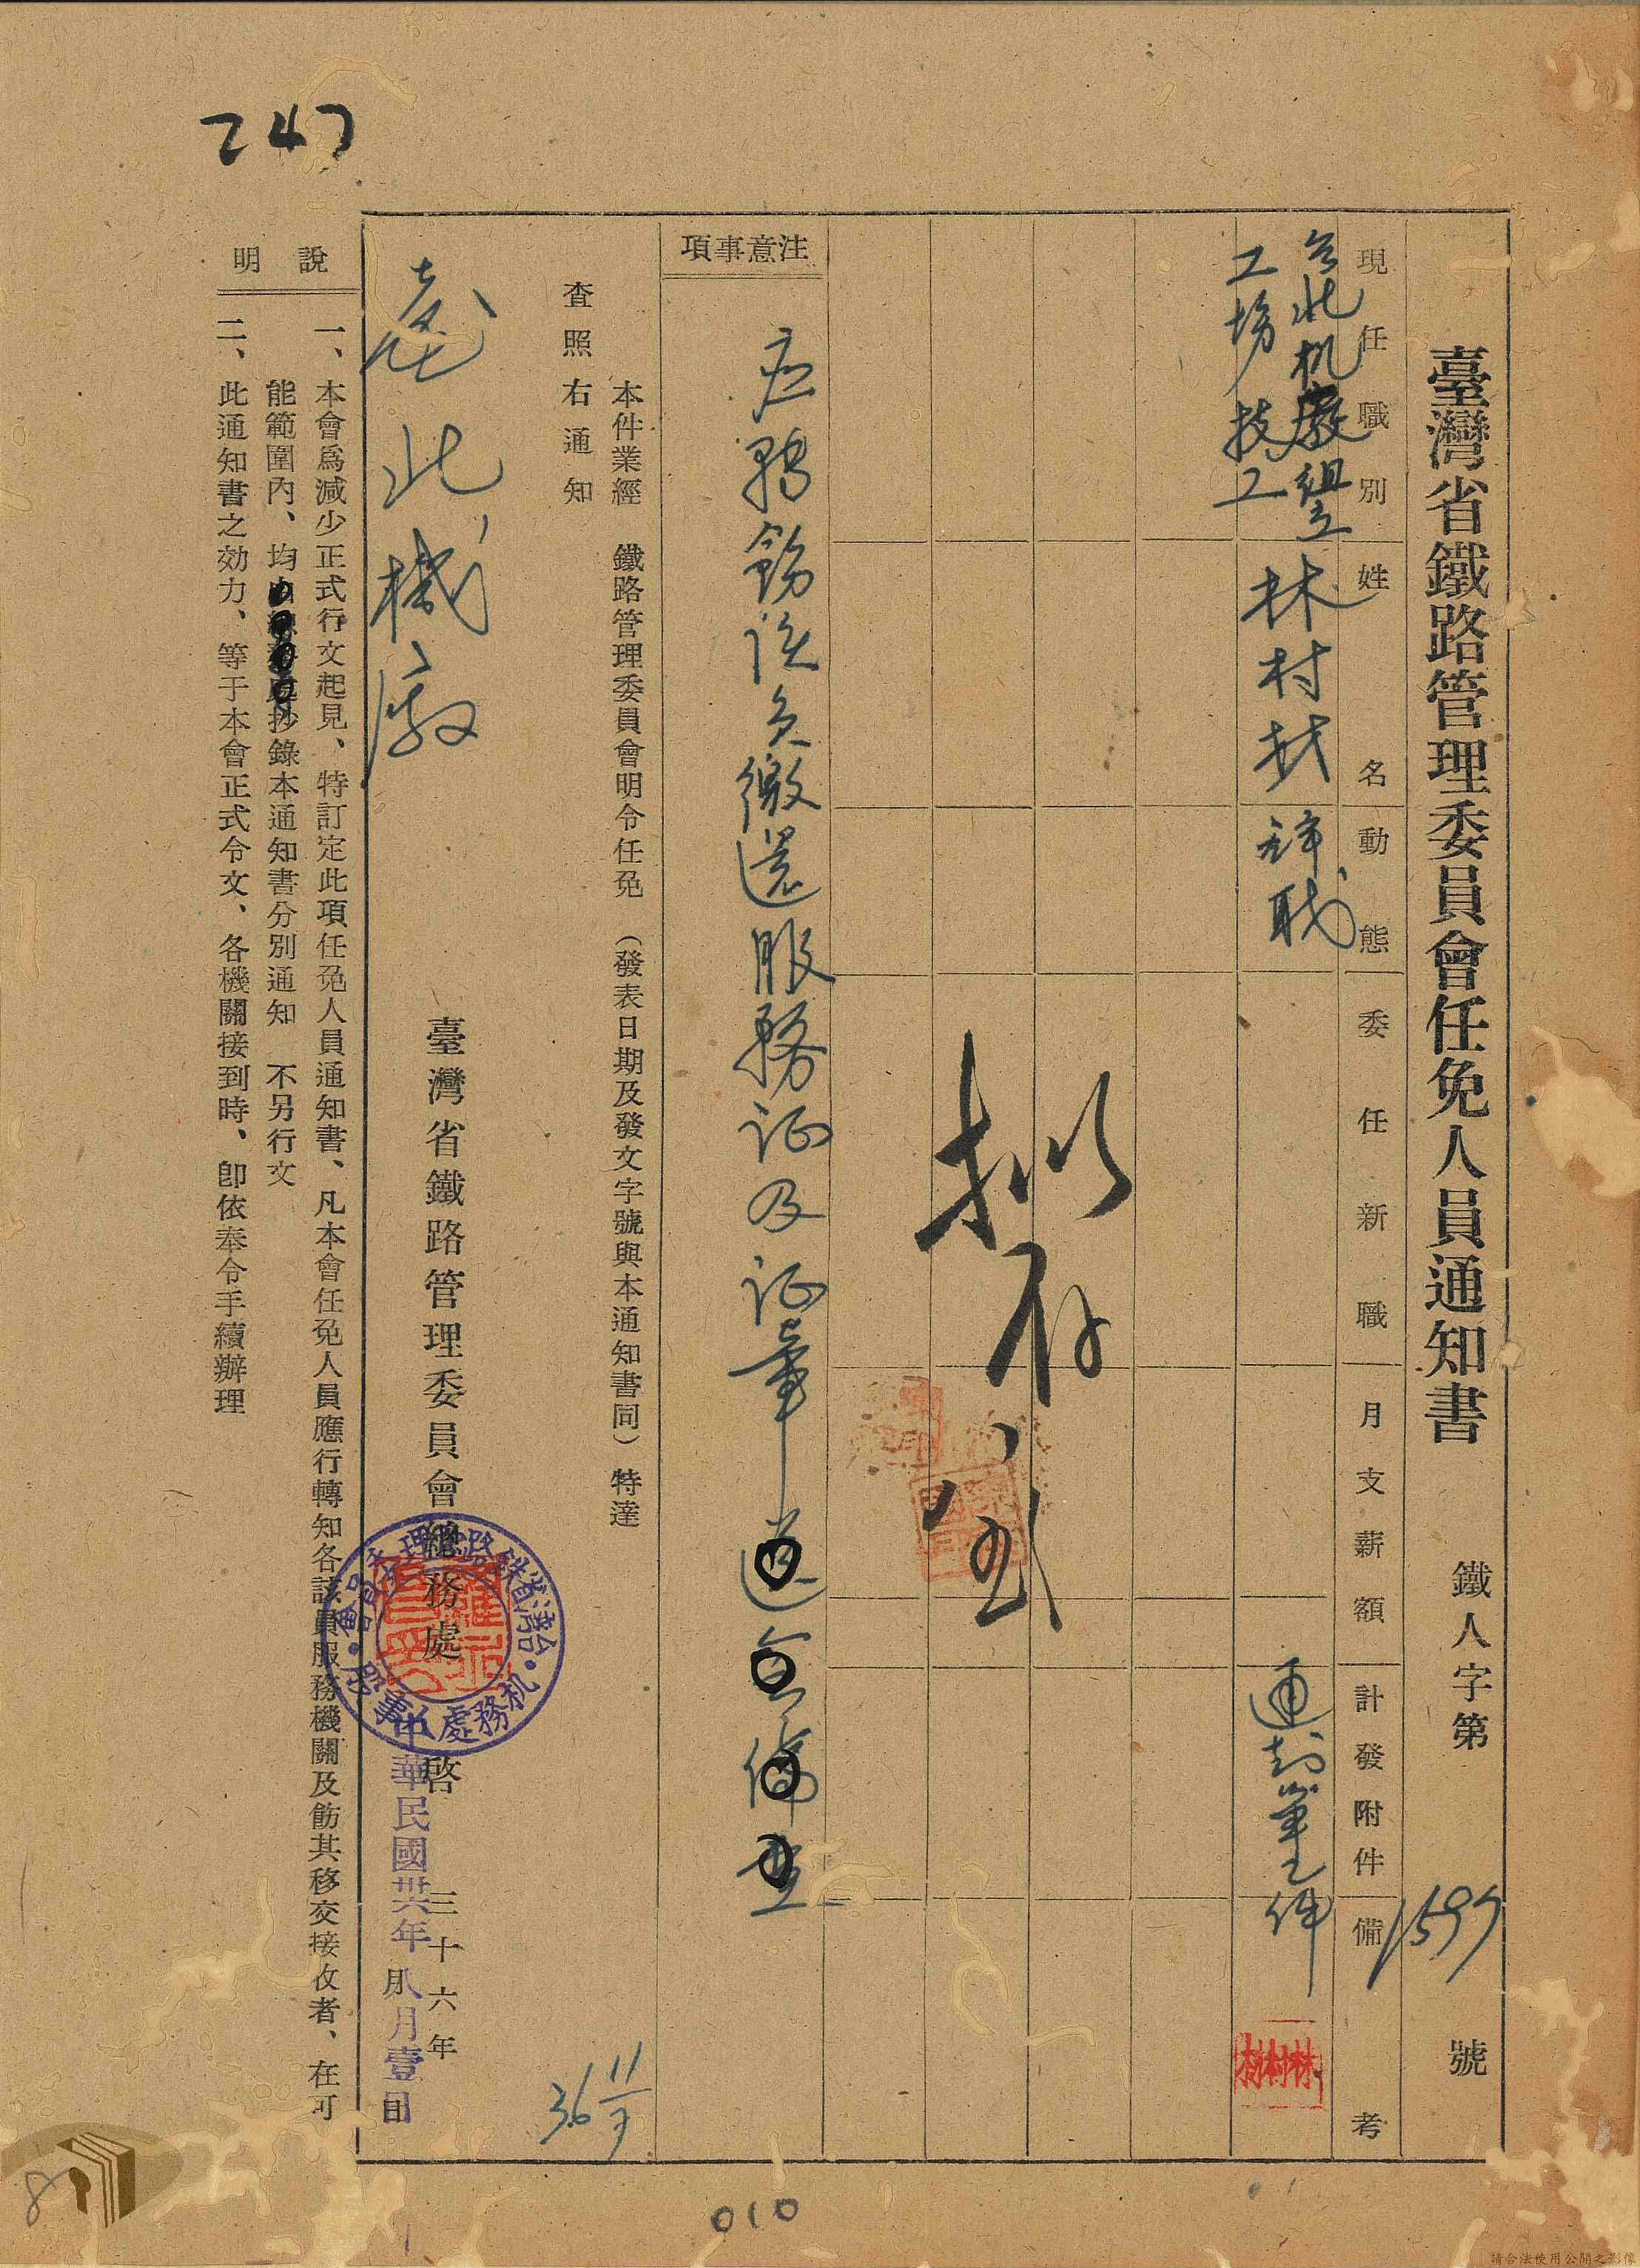 臺灣省鐵路管理委員會任免人員通知書 鐵人字第1597號
現任職別
姓名
動態
委任新職
月支薪額
計發附件
備考
台北机廠組立
工場技工
林村材
辭職
通知單乙件
拟存
注意事項
应轉飭該員繳還服務证及证章
本件業經 鐵路管理委員會明令任免 (發表日期及發文字號與本通知書同) 特達
查照右通知
臺北機廠
臺灣省鐵路管理委員會總務處 啓
三十六年 月 日
中華民國卅六年八月壹日
說明
一、本會爲減少正式行文起見、特訂定此項任免人員通知書、凡本會任免人員應行轉知各該員服務機關及飭其移交接收者、在可
能範圍內、均抄錄本通知書分別通知 不另行文
二、此通知書之効力、等于本會正式令文、各機關接到時、卽依奉令手續辦理
747
010
8
請合法使用公開之影像